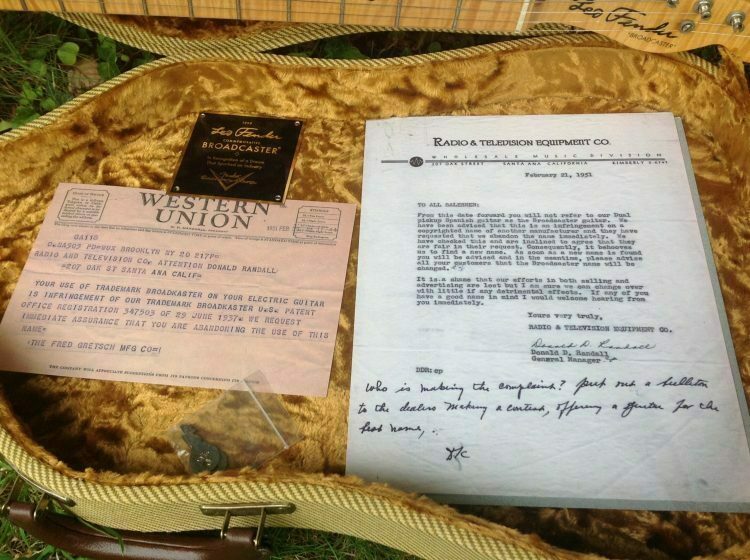 Leo Fender
"BROADCASTER"
Leo Fender
COMMEMORATIVE
BROADCASTER
In Recognition of a Dream
that Spawned an Industry
WESTERN
UNION
1951 FEB
GA118
O.SA303 PD=BUX BROOKLYN NY 20 217P=
RADIO AND TELEVISION CO, ATTENTION DONALD RANDALL
=207 OAK ST SANTA ANA CALIF=
YOUR USE OF TRADEMARK BROADKASTER ON YOUR ELECTRIC GUITAR
IS INFRINGEMENT OF OUR TRADEMARK BROADKASTER U.S. PATENT
OFFICE REGISTRATION 347503 OF 29 JUNE 1937. WE REQUEST
IMMEDIATE ASSURANCE THAT YOU ARE ABANDONING THE USE OF THIS
NAME=
:THE FRED GRETSCH MFG CO=:
THE COMPANY WILL APPRECIATE SUGGESTIONS FROM ITS PATRONS CONCERNING ITS SERVICE
RADIO & TELEVISION EQUIPMENT CO.
WHOLESALE MUSIC DIVISION
207 OAK STREET SANTA ANA CALIFORNIA KIMBERLY 2-6741
February 21, 1951
TO ALL SALESMEN:
From this date forward you will not refer to our Dual
pickup Spanish guitar as the Broadcaster guitar. We
have been advised that this is an infringement on a
copyrighted name of another manufacturer and they have
requested that we abandon the name immediately. We
have checked this and are inclined to agree that they
are fair in their request. Consequently, it behooves
us to find a new name. As soon as a new name is found
you will be advised and in the meantime, please advise
all your customers that the Broadcaster name will be
changed.
It is a shame that our efforts in both selling and
advertising are lost but I am sure we can change over
with little if any detrimental effects. If any of you
have a good name in mind I would welcome hearing from
you immediately.
Yours very truly,
RADIO & TELEVISION EQUIPMENT CO.
Donald D. Randall
Donald D. Randall
General Manager
DDR:cp
Who is making the complaint? Put out a bulletin
to the dealers making a contest, offering a guitar for the
best name,